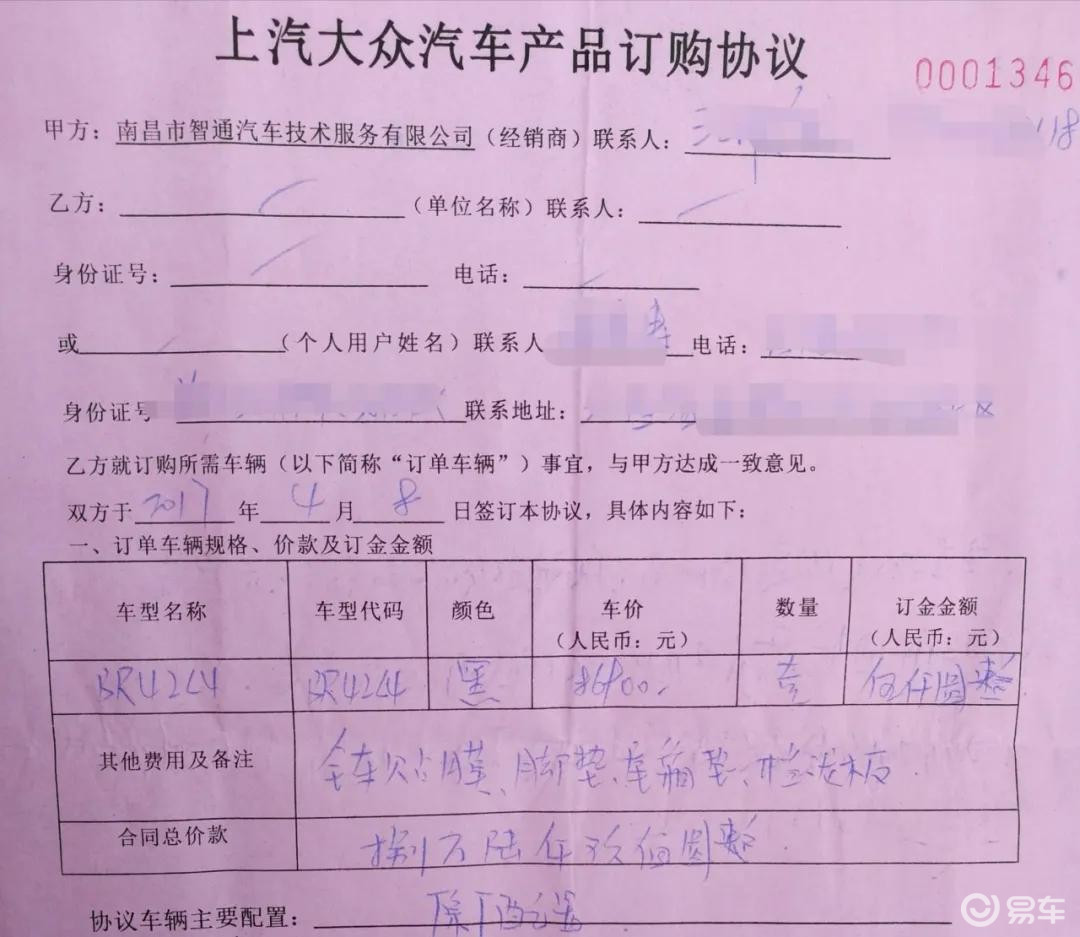 上汽大众汽车产品订购协议
0001346
甲方：南昌市智通汽车技术服务有限公司（经销商）联系人： 118
乙方：（单位名称）联系人：
身份证号： 电话：
或（个人用户姓名）联系人 电话：
身份证号 联系地址： 区
乙方就订购所需车辆（以下简称“订单车辆”）事宜，与甲方达成一致意见。
双方于2017年4月8日签订本协议，具体内容如下：
一、订单车辆规格、价款及订金金额
车型名称 车型代码 颜色 车价 数量 订金金额
（人民币：元） （人民币：元）
BR42C4 BR42C4 黑 86900. 壹 伍仟圆整
其他费用及备注 全车贴膜、脚垫、车箱垫、挡泥板
合同总价款 捌万陆仟玖佰圆整
协议车辆主要配置：
易车